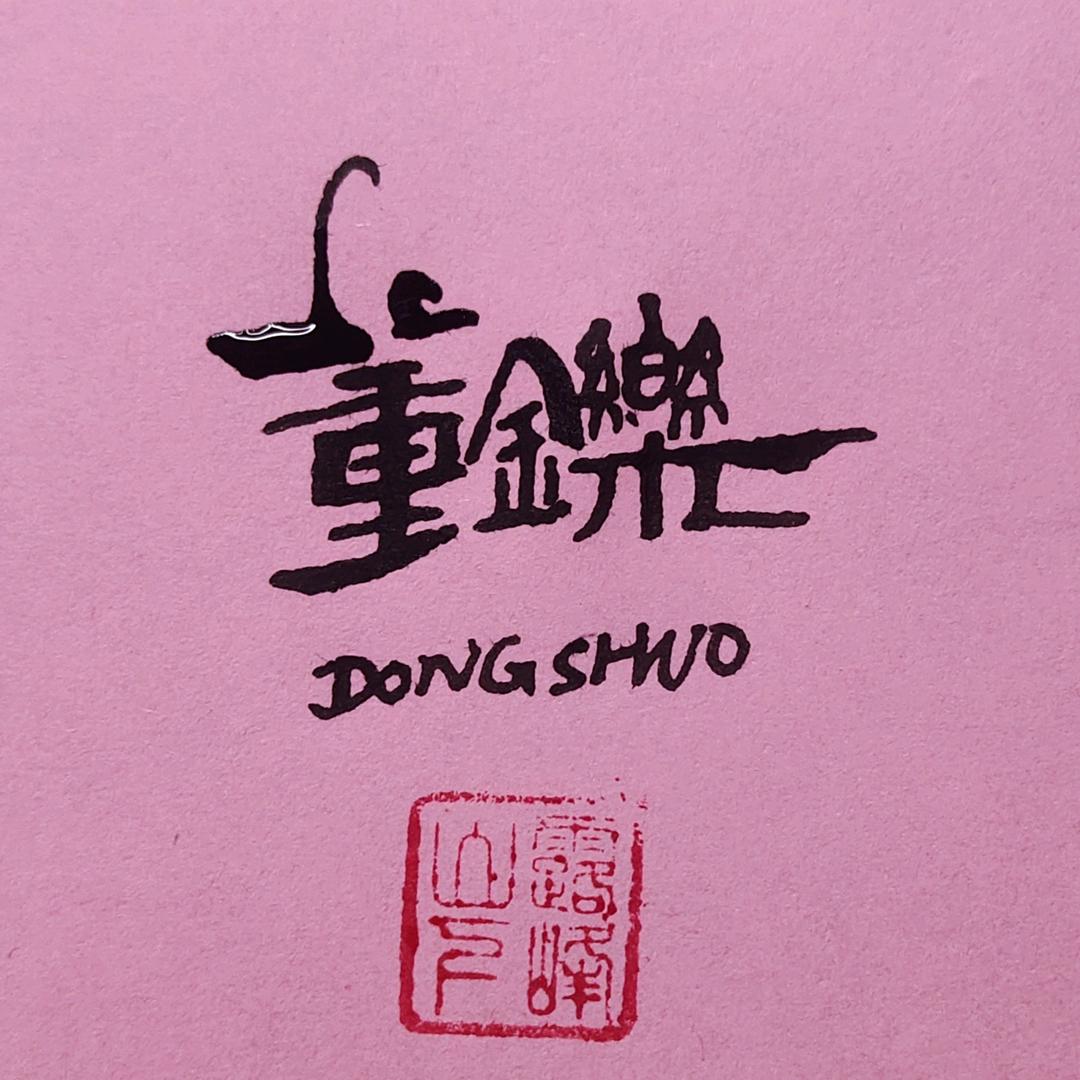 董鑠
DONG SHUO
露峰
山人